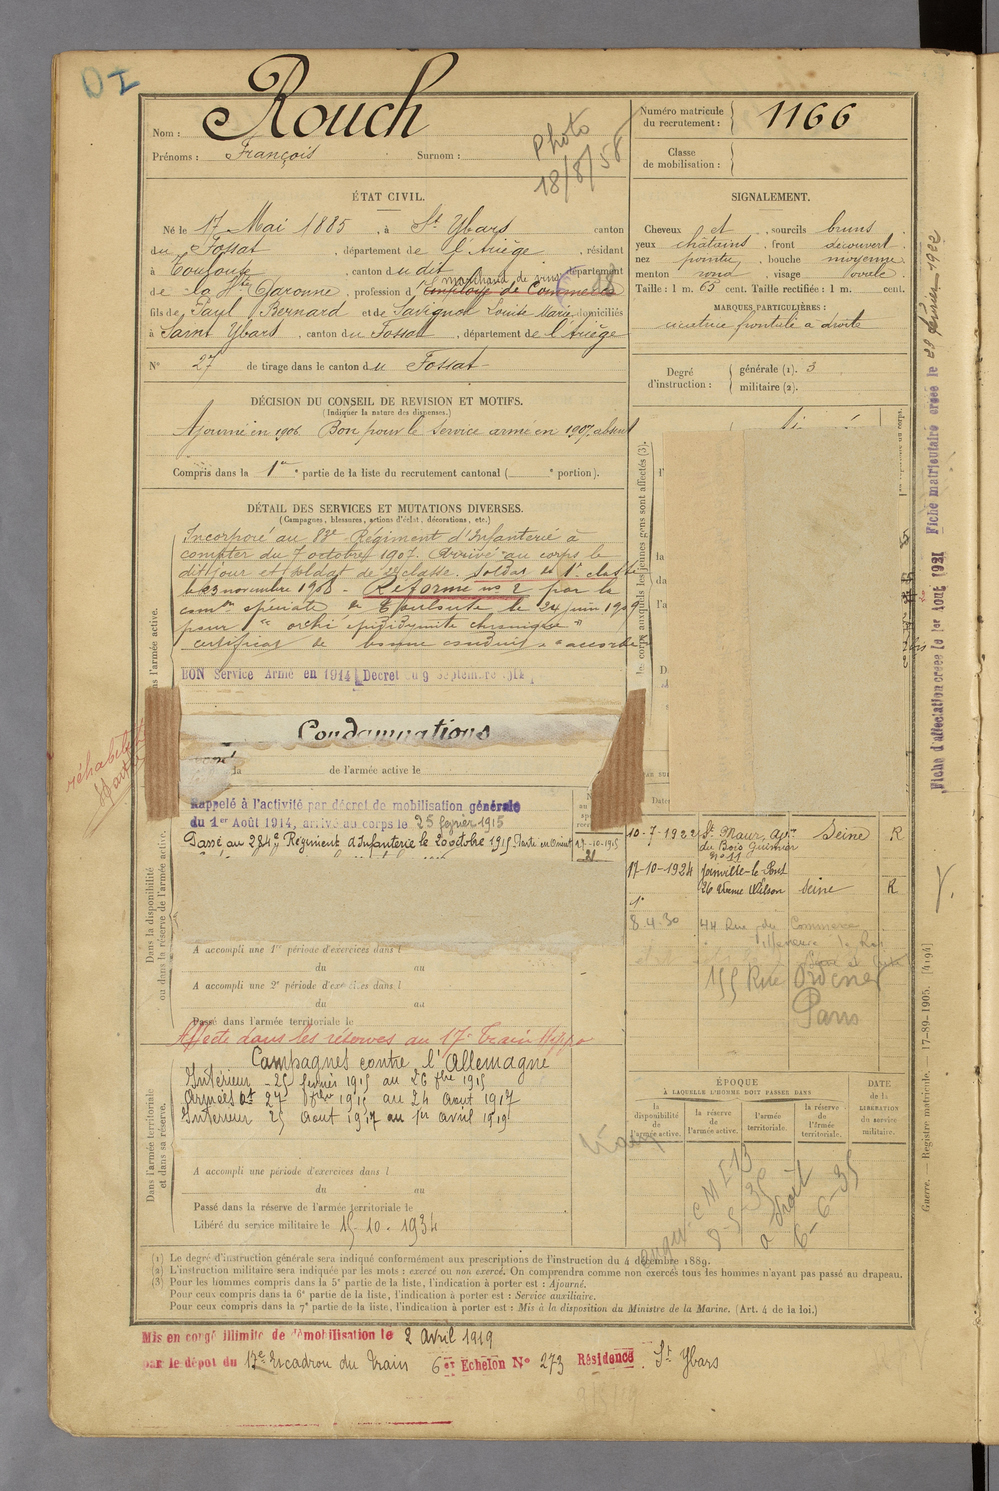 DI
Rouch
Nom :
Prénoms : François Surnom :
Photo
18/8/58
Numéro matricule
du recrutement : 1166
Classe
de mobilisation :
ÉTAT CIVIL.
Né le 17 Mai 1885, à St Ybars canton
du Fossat, département de l'Ariège, résidant
à Toulouse, canton du dit, département
marchand de vins
de la Hte Garonne, profession d'Employé de Commerce
fils de Paul Bernard et de Savignol Louise Marie, domiciliés
à Saint Ybars, canton du Fossat, département de l'Ariège
N° 27 de tirage dans le canton du Fossat
SIGNALEMENT.
Cheveux et, sourcils bruns
yeux châtains, front découvert
nez pointu, bouche moyenne
menton rond, visage ovale
Taille : 1 m. 65 cent. Taille rectifiée : 1 m. cent.
MARQUES PARTICULIÈRES :
cicatrice frontale à droite
Degré
d'instruction :
générale (1). 3
militaire (2).
DÉCISION DU CONSEIL DE REVISION ET MOTIFS.
(Indiquer la nature des dispenses.)
Ajourné en 1906. Bon pour le service armé en 1907, absent
Compris dans la 1re partie de la liste du recrutement cantonal ( e portion).
DÉTAIL DES SERVICES ET MUTATIONS DIVERSES.
(Campagnes, blessures, actions d'éclat, décorations, etc.)
Incorporé au Régiment d'Infanterie à
compter du 7 octobre 1907. Arrivé au corps le
dit jour et soldat de 2e classe. Soldat de 1e classe
le 23 novembre 1908 - Réformé n° 2 par la
comon spéciale de Toulouse le 24 juin 1909
pour "orchi épididymite chronique"
certificat de bonne conduite "accordé"
BON Service Armé en 1914 Decret du 9 septembre 1914
Condamnations
de l'armée active le
réhabilité
les corps auxquels les jeunes gens sont affectés (3).
Rappelé à l'activité par décret de mobilisation générale
du 1er Août 1914, arrivé au corps le 25 février 1915
Passé au 284e Régiment d'Infanterie le 20 octobre 1915 Parti en Orient 17-10-1915
Dans la disponibilité
ou dans la réserve de l'armée active.
A accompli une 1re période d'exercices dans l
du au
A accompli une 2e période d'exercices dans l
du au
Passé dans l'armée territoriale le
Affecté dans les réserves au 17e Train Hippo
Campagnes contre l'Allemagne
Intérieur - 25 février 1915 au 26 bre 1915
Armées 27 bre 1915 au 24 Aout 1917
Intérieur 25 Aout 1917 au 1er avril 1919
Dans l'armée territoriale
et dans sa réserve.
A accompli une période d'exercices dans l
du au
Passé dans la réserve de l'armée territoriale le
Libéré du service militaire le 15-10-1934
10-7-1922 St Maur, Seine R
17-10-1924 Joinville-le-Pont
26 Wilson Seine R
8.4.30 44 Rue du Commerce
155 Rue Ordener
Paris
ÉPOQUE
À LAQUELLE L'HOMME DOIT PASSER DANS
la disponibilité de l'armée active.
la réserve de l'armée active.
l'armée territoriale.
la réserve de l'armée territoriale.
DATE
de la
LIBÉRATION
du service
militaire.
a droit
6-6-35
(1) Le degré d'instruction générale sera indiqué conformément aux prescriptions de l'instruction du 4 décembre 1889.
(2) L'instruction militaire sera indiquée par les mots : exercé ou non exercé. On comprendra comme non exercés tous les hommes n'ayant pas passé au drapeau.
(3) Pour les hommes compris dans la 5e partie de la liste, l'indication à porter est : Ajourné.
Pour ceux compris dans la 6e partie de la liste, l'indication à porter est : Service auxiliaire.
Pour ceux compris dans la 7e partie de la liste, l'indication à porter est : Mis à la disposition du Ministre de la Marine. (Art. 4 de la loi.)
Mis en congé illimité de démobilisation le 2 avril 1919
par le dépôt du 17e Escadron du Train 6e Echelon N° 273 Résidence St Ybars
Fiche d'affectation créée le 1er Août 1921 Fiche matriculaire créée le 28 février 1922
Guerre. — Registre matricule. — 17-89-1905. [4194]